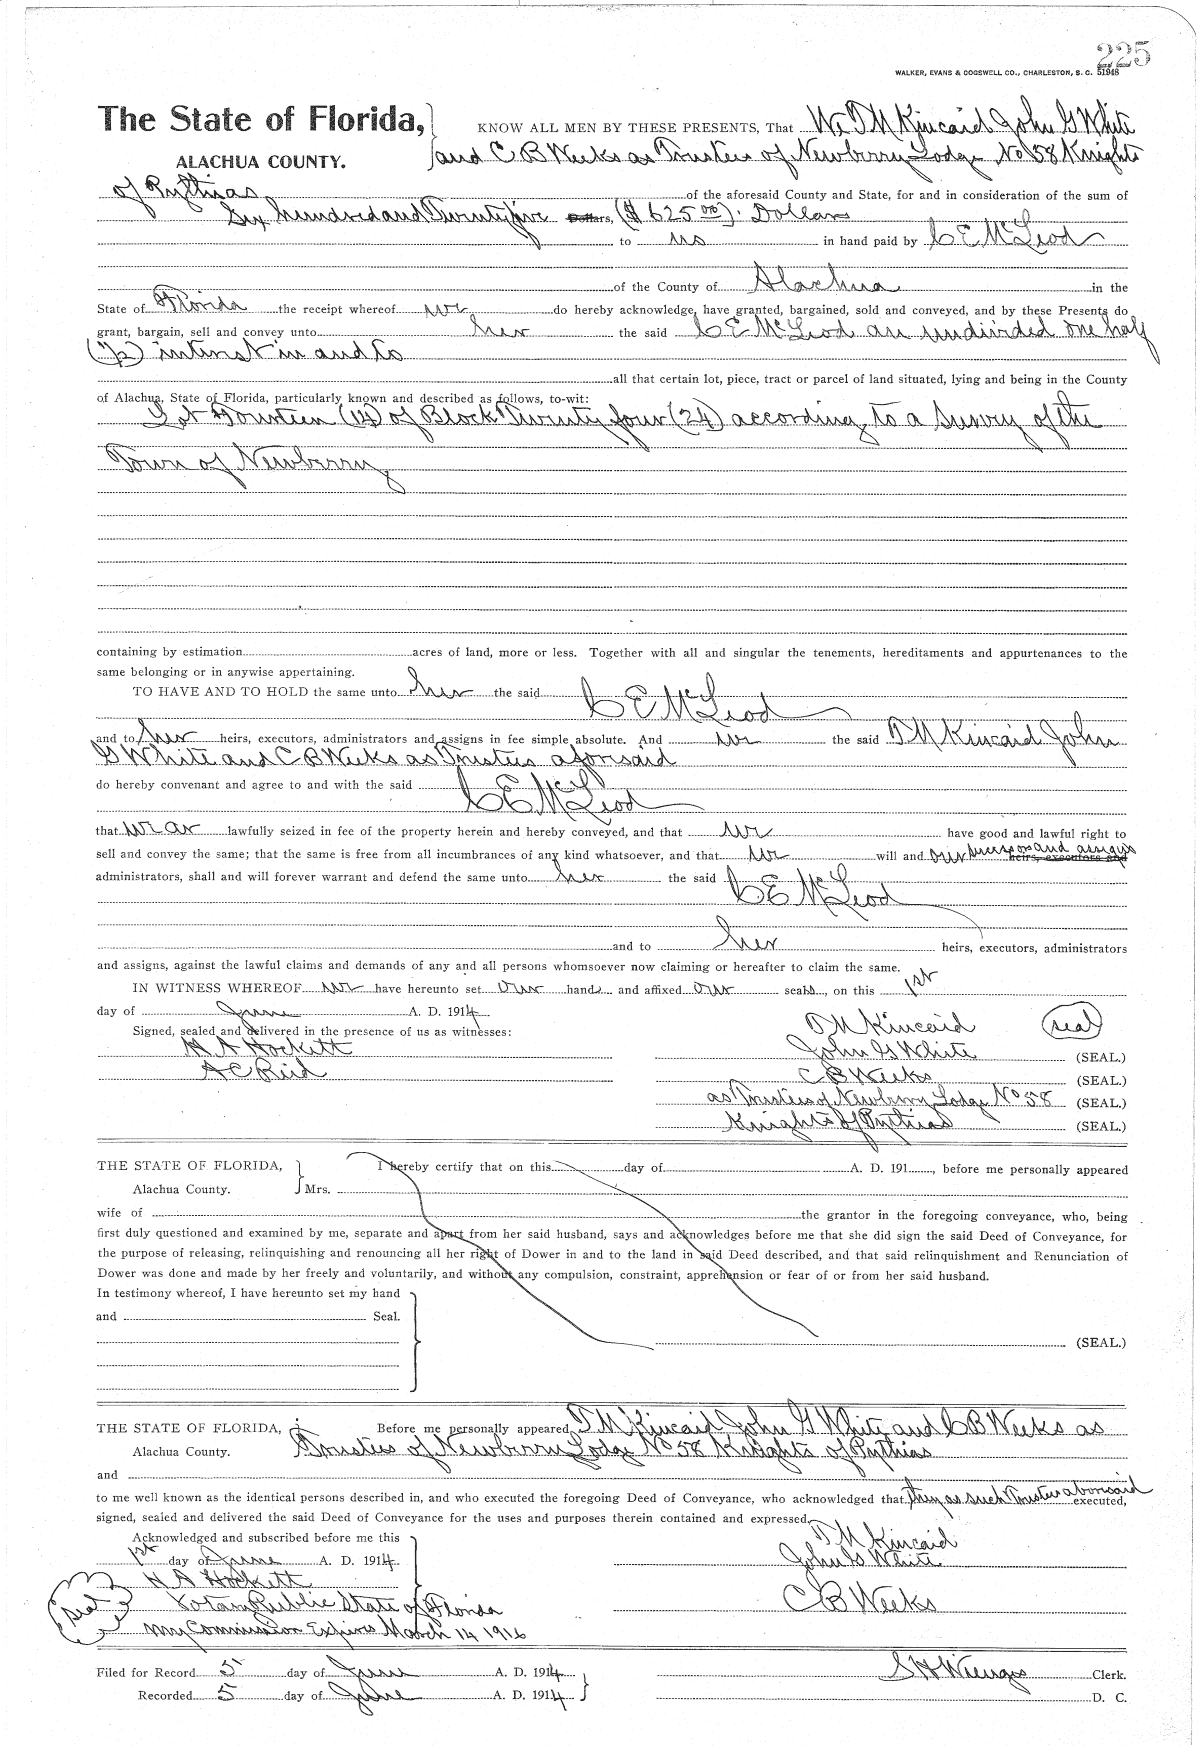 225
WALKER, EVANS & COGSWELL CO., CHARLESTON, S. C. 51948
The State of Florida, KNOW ALL MEN BY THESE PRESENTS, That We T M Kincaid John G White
ALACHUA COUNTY. and C B Weeks as Trustees of Newberry Lodge No 58 Knights
of Pythias of the aforesaid County and State, for and in consideration of the sum of
Six hundred and Twenty five Dollars, ($625.00). Dollars
to us in hand paid by C E McLeod
of the County of Alachua in the
State of Florida the receipt whereof we do hereby acknowledge, have granted, bargained, sold and conveyed, and by these Presents do
grant, bargain, sell and convey unto her the said C E McLeod an undivided one half
(1/2) interest in and to
all that certain lot, piece, tract or parcel of land situated, lying and being in the County
of Alachua, State of Florida, particularly known and described as follows, to-wit:
Lot Fourteen (14) of Block Twenty four (24) according to a Survey of the
Town of Newberry
containing by estimation acres of land, more or less. Together with all and singular the tenements, hereditaments and appurtenances to the
same belonging or in anywise appertaining.
TO HAVE AND TO HOLD the same unto her the said C E McLeod
and to her heirs, executors, administrators and assigns in fee simple absolute. And we the said T M Kincaid John
G White and C B Weeks as Trustees aforesaid
do hereby convenant and agree to and with the said C E McLeod
that we are lawfully seized in fee of the property herein and hereby conveyed, and that we have good and lawful right to
sell and convey the same; that the same is free from all incumbrances of any kind whatsoever, and that we will and our successors and assigns heirs, executors and
administrators, shall and will forever warrant and defend the same unto her the said C E McLeod
and to her heirs, executors, administrators
and assigns, against the lawful claims and demands of any and all persons whomsoever now claiming or hereafter to claim the same.
IN WITNESS WHEREOF we have hereunto set our hands and affixed our seals, on this 1st
day of June A. D. 1914
Signed, sealed and delivered in the presence of us as witnesses: T M Kincaid seal
H A Hockett John G White (SEAL.)
A C Reid C B Weeks (SEAL.)
as Trustees of Newberry Lodge No 58 (SEAL.)
Knights of Pythias (SEAL.)
THE STATE OF FLORIDA, I hereby certify that on this day of A. D. 191 , before me personally appeared
Alachua County. Mrs.
wife of the grantor in the foregoing conveyance, who, being
first duly questioned and examined by me, separate and apart from her said husband, says and acknowledges before me that she did sign the said Deed of Conveyance, for
the purpose of releasing, relinquishing and renouncing all her right of Dower in and to the land in said Deed described, and that said relinquishment and Renunciation of
Dower was done and made by her freely and voluntarily, and without any compulsion, constraint, apprehension or fear of or from her said husband.
In testimony whereof, I have hereunto set my hand
and Seal.
(SEAL.)
THE STATE OF FLORIDA, Before me personally appeared T M Kincaid John G White and C B Weeks as
Alachua County. Trustees of Newberry Lodge No 58 Knights of Pythias
and
to me well known as the identical persons described in, and who executed the foregoing Deed of Conveyance, who acknowledged that they as such Trustees aforesaid executed,
signed, sealed and delivered the said Deed of Conveyance for the uses and purposes therein contained and expressed.
Acknowledged and subscribed before me this T M Kincaid
1st day of June A. D. 1914. John G White
H A Hockett
seal Notary Public State of Florida C B Weeks
My Commission Expires March 14 1916
Filed for Record 5 day of June A. D. 1914 S H Wienges Clerk.
Recorded 5 day of June A. D. 1914 D. C.